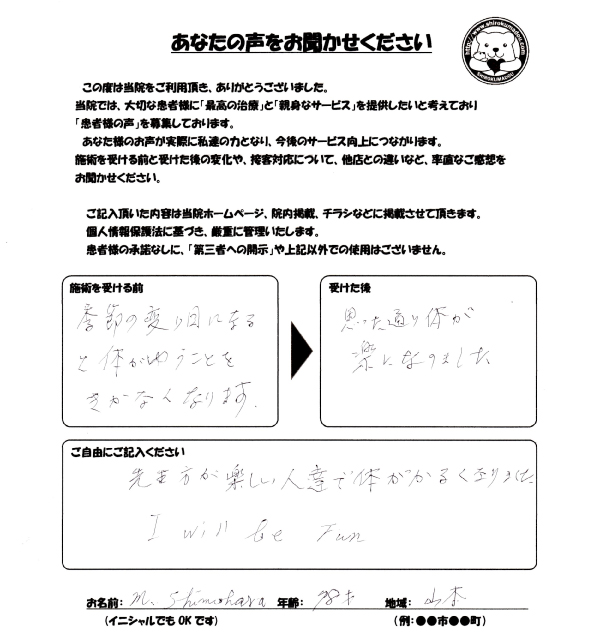 あなたの声をお聞かせください
http://www.shirokumadou.com
SHIROKUMADOU
この度は当院をご利用頂き、ありがとうございました。
当院では、大切な患者様に「最高の治療」と「親身なサービス」を提供したいと考えており
「患者様の声」を募集しております。
あなた様のお声が実際に私達の力となり、今後のサービス向上につながります。
施術を受ける前と受けた後の変化や、接客対応について、他店との違いなど、率直なご感想を
お聞かせください。
ご記入頂いた内容は当院ホームページ、院内掲載、チラシなどに掲載させて頂きます。
個人情報保護法に基づき、厳重に管理いたします。
患者様の承諾なしに、「第三者への開示」や上記以外での使用はございません。
施術を受ける前
季節の変り目になる
と体がゆうことを
きかなくなります.
受けた後
思った通り体が
楽になりました
ご自由にご記入ください
先生方が楽しい人達で体がかるくなりました
I will be Fun
お名前: M. Shimohara 年齢: 才 地域:
(イニシャルでもOKです)
(例:●●市●●町)